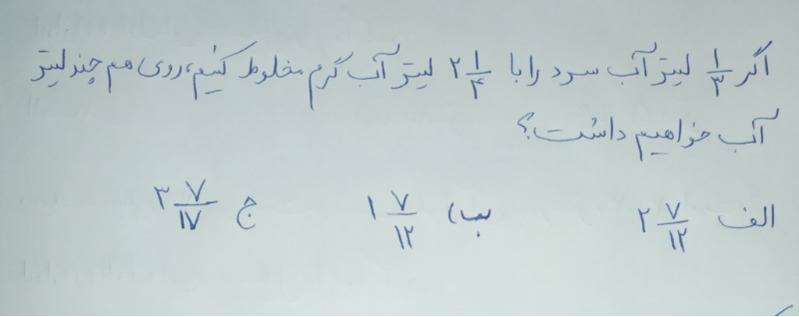 اگر ۱/۳ لیتر آب سرد را با ۲ ۱/۴ لیتر آب گرم مخلوط کنیم، روی هم چند لیتر
آب خواهیم داشت؟
الف ۲ ۷/۱۲ ب) ۱ ۷/۱۲ ج ۳ ۷/۱۷